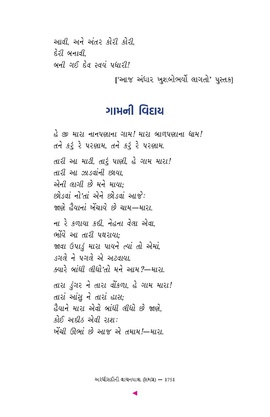 આવી, અને અંતર કોરી કોરી,
દેરી બનાવી,
બની ગઈ દેવ સ્વયં પધારી!
['આજ અંધાર ખુશબોભર્યો લાગતો' પુસ્તક]
ગામની વિદાય
હે જી મારા નાનપણાના ગામ! મારા બાળપણાના ધામ!
તને કરું રે પરણામ, તને કરું રે પરણામ.
તારી આ માડી, તારું પાણી, હે ગામ મારા!
તારી આ ઝાડવાંની છાયા,
એની લાગી છે મને માયા;
છોડવાં નો'તાં એને છોડવાં આજેઃ
જાણે હૈયાનાં ખેંચાવે છે ચામ—મારા.
ના રે કળાવા કદી, નેહના વેલા એવા,
ભોંયે આ તારી પથરાયા;
જાવા ઉપાડું મારા પાયને ત્યાં તો એમાં,
ડગલે ને પગલે એ અટવાયા.
ક્યારે બાંધી લીધો'તો મને આમ?—મારા.
તારા ડુંગર ને તારા વોંકળા, હે ગામ મારા!
તારાં આંસુ ને તારાં હાસ;
હૈયાને મારા એવો બાંધી લીધો છે જાણે,
કોઈ અદીઠ એવી રાશઃ
ખેંચી ઊભાં છે આજ એ તમામ!—મારા.
અરધીસદીની વાચનયાત્રા (છબછ) — 1751